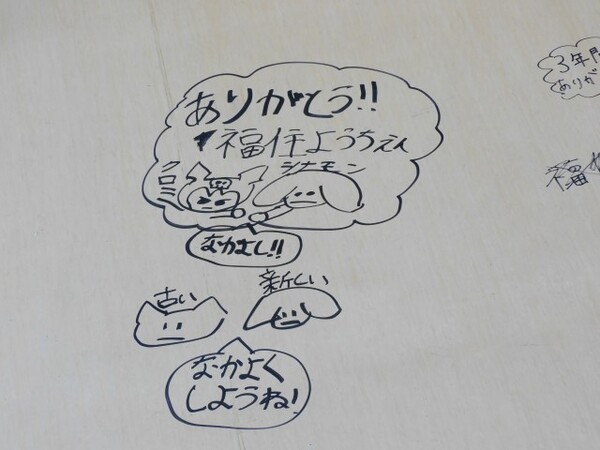 ありがとう!!
福住ようちえん
クロミ
シナモン
なかよし!!
古い
新しい
なかよく
しようね!
3年間
ありが
福